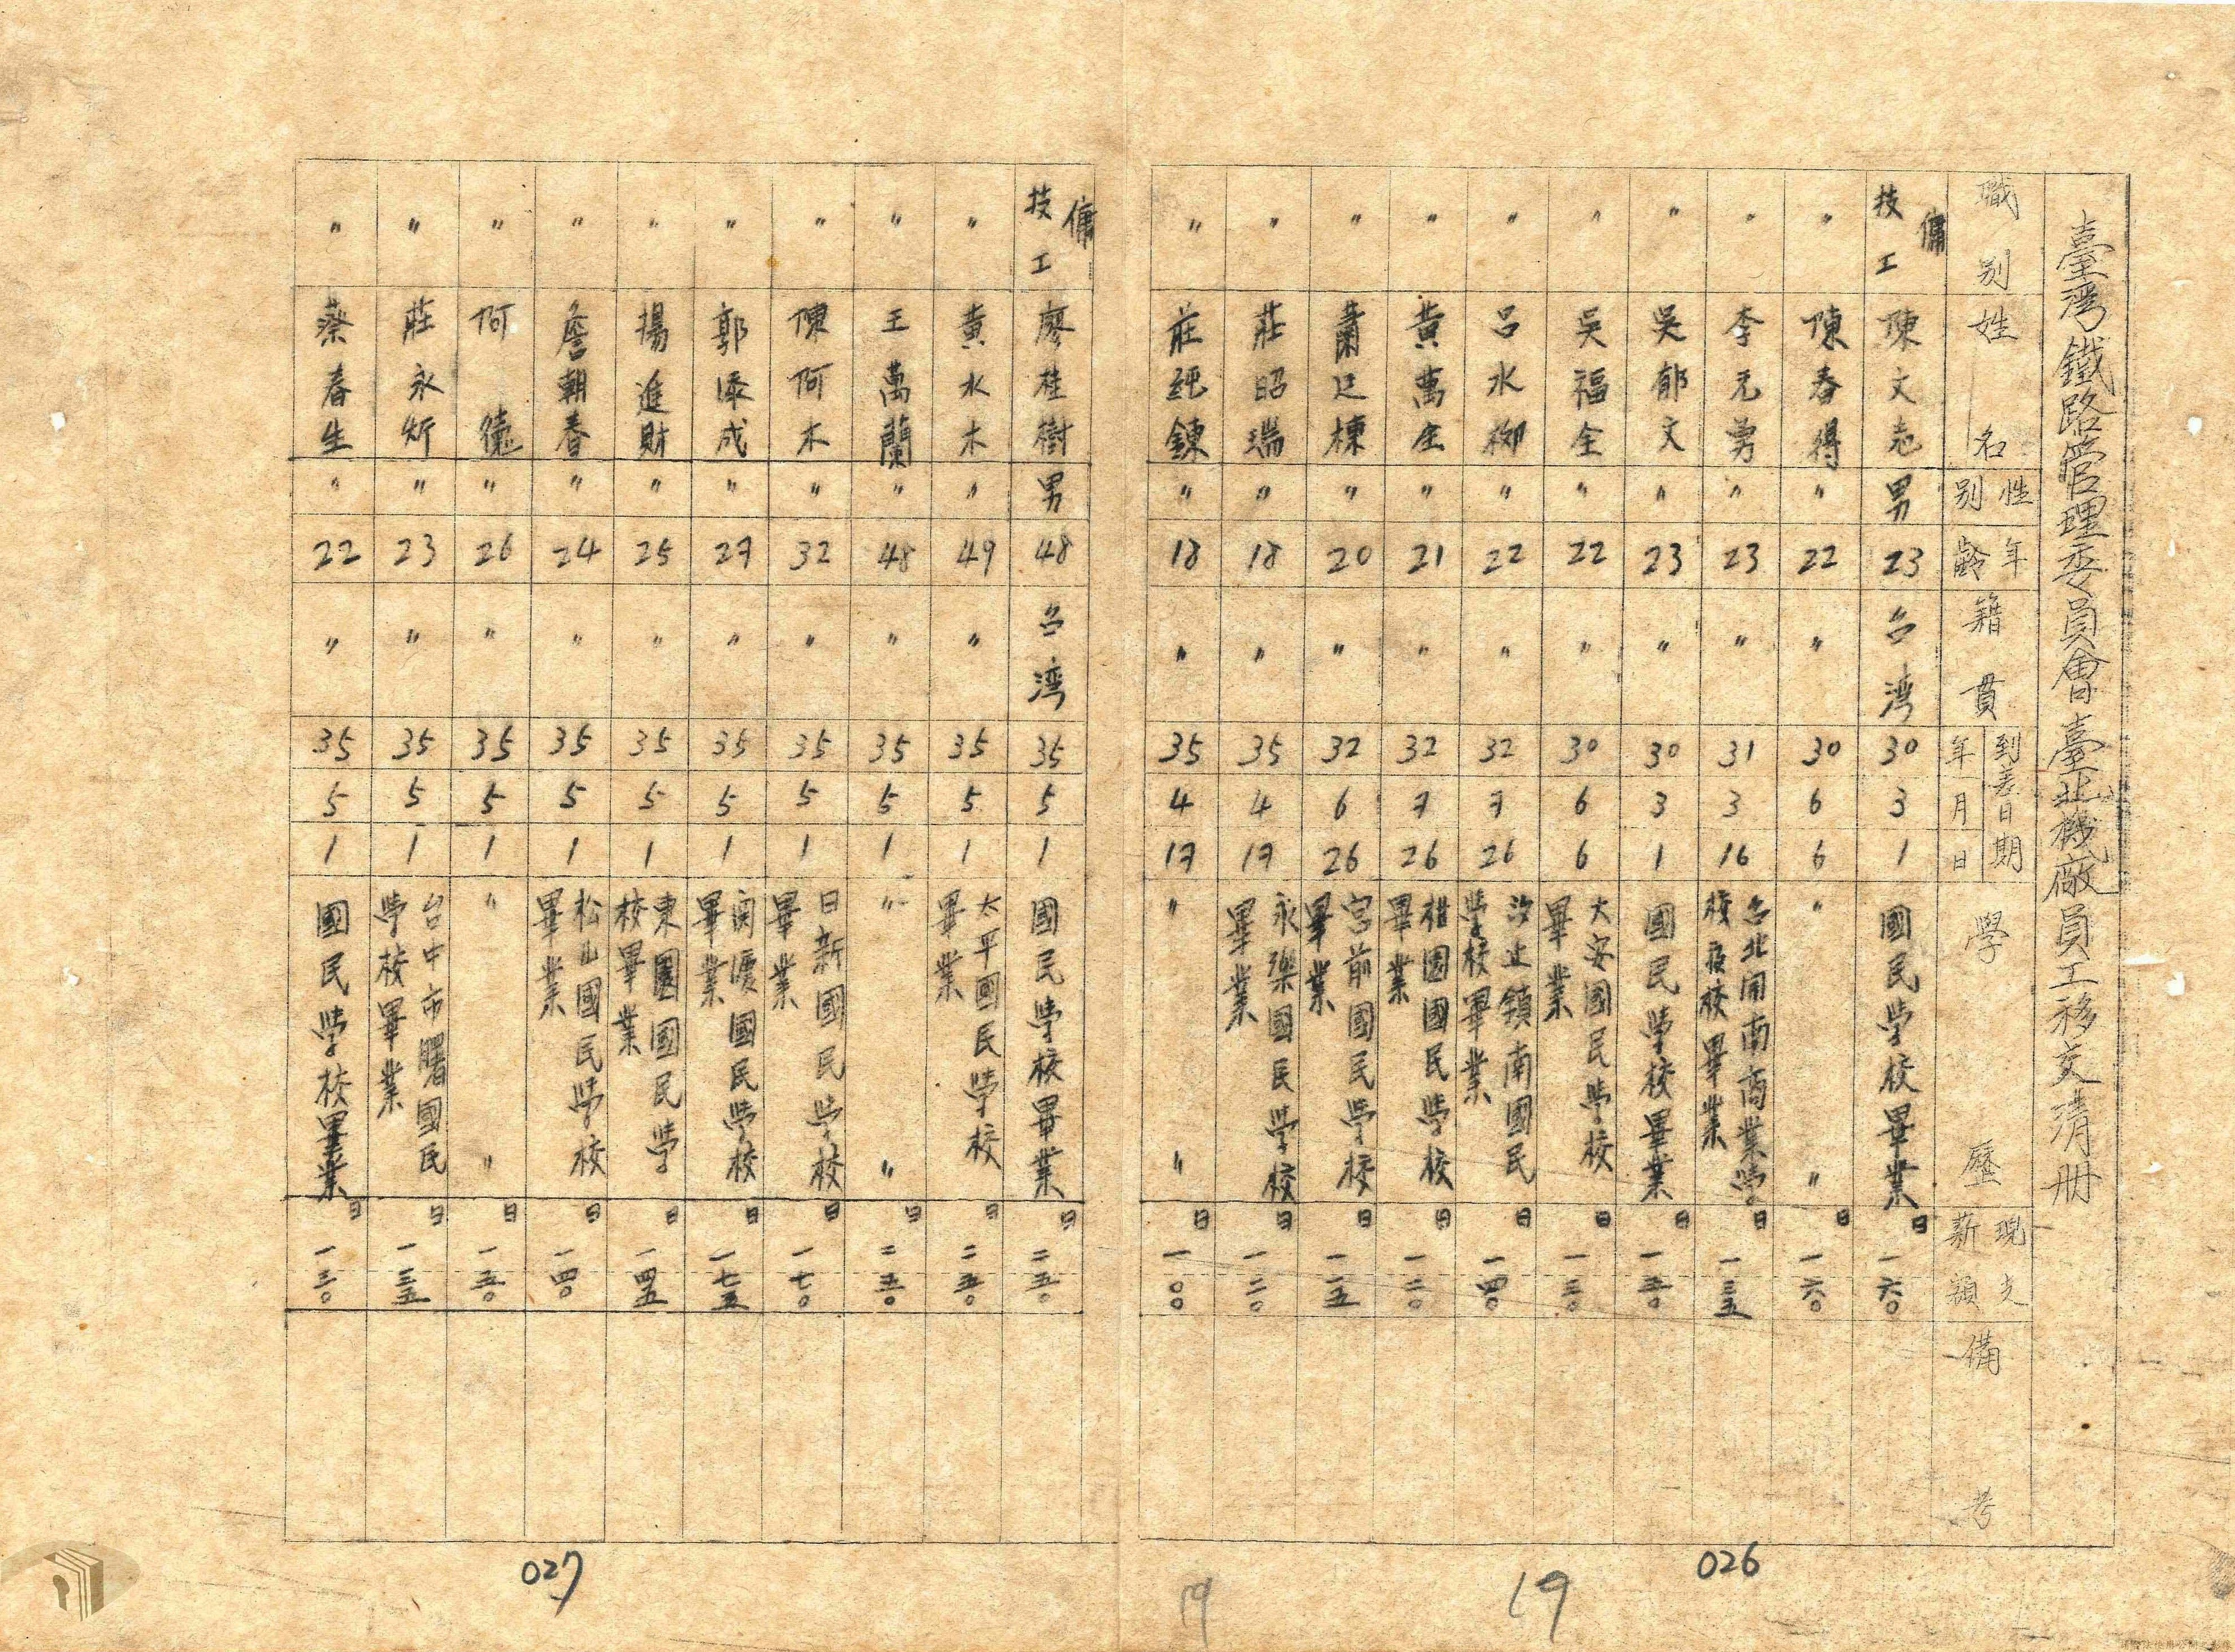 臺灣鐵路管理委員會臺北機廠員工移交清冊
職別 姓名 性別 年齡 籍貫 到差日期 年 月 日 學歷 現支薪額 備考
傭 技工 陳文志 男 23 台湾 30 3 1 國民学校畢業 日 一六〇
〃 陳春得 〃 22 〃 30 6 6 〃 〃 日 一六〇
〃 李元勇 〃 23 〃 31 3 16 台北開南商業学校夜校畢業 日 一三五
〃 吳郁文 〃 23 〃 30 3 1 國民学校畢業 日 一五〇
〃 吳福全 〃 22 〃 30 6 6 大安國民学校畢業 日 一三〇
〃 呂水柳 〃 22 〃 32 7 26 汐止鎮南國民学校畢業 日 一四〇
〃 黃萬全 〃 21 〃 32 7 26 柑園國民学校畢業 日 一二〇
〃 蕭足棟 〃 20 〃 32 6 26 宮前國民学校畢業 日 一一五
〃 莊昭瑞 〃 18 〃 35 4 17 永樂國民学校畢業 日 一二〇
〃 莊純鍊 〃 18 〃 35 4 17 〃 〃 日 一〇〇
傭 技工 廖桂樹 男 48 台湾 35 5 1 國民学校畢業 日 二五〇
〃 黃水木 〃 49 〃 35 5 1 太平國民学校畢業 日 二五〇
〃 王萬蘭 〃 48 〃 35 5 1 〃 〃 日 二五〇
〃 陳阿木 〃 32 〃 35 5 1 日新國民学校畢業 日 一七〇
〃 郭添成 〃 27 〃 35 5 1 國民学校畢業 日 一七五
〃 揚進財 〃 25 〃 35 5 1 東園國民学校畢業 日 一四五
〃 詹朝春 〃 24 〃 35 5 1 松山國民学校畢業 日 一四〇
〃 阿德 〃 26 〃 35 5 1 〃 〃 日 一五〇
〃 莊永炘 〃 23 〃 35 5 1 台中市曙國民学校畢業 日 一三五
〃 蔡春生 〃 22 〃 35 5 1 國民学校畢業 日 一三〇
026
19
19
027